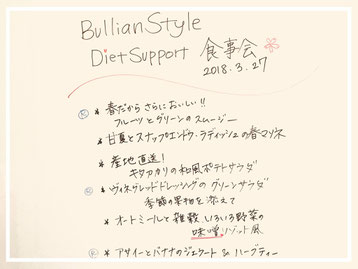 Bullian Style
Diet Support 食事会
2018.3.27
* 春だから さらにおいしい!!
フルーツとグリーンのスムージー
* 甘夏とスナップエンドウ・ラディッシュの春マリネ
* 産地直送!
キタアカリの和風ポテトサラダ
* ヴィネグレットドレッシングの グリーンサラダ
季節の果物を添えて
* オートミールと雑穀 いろいろ野菜の
味噌リゾット風
* アサイーとバナナのジェラート & ハーブティー